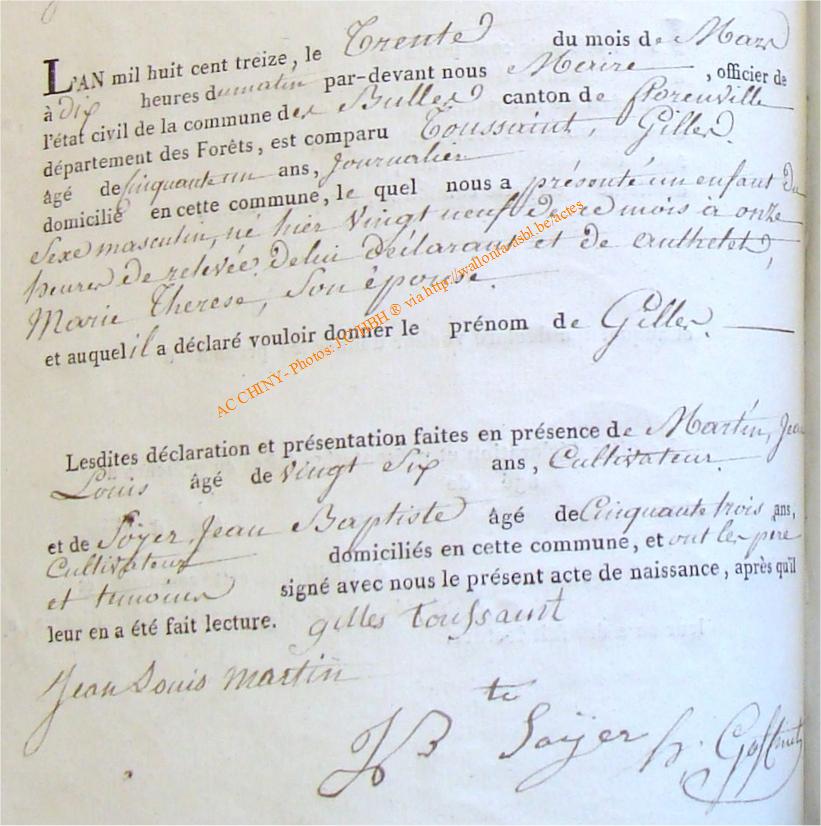 L'AN mil huit cent treize, le Trente du mois de Mars
à dix heures du matin par-devant nous Maire, officier de
l'état civil de la commune des Bulles canton de florenville
département des Forêts, est comparu Toussaint, Gilles.
âgé de Cinquante un ans, Journalier
domicilié en cette commune, le quel nous a présenté un enfant du
Sexe masculin, né hier vingt neuf de ce mois à onze
heures de relevée, de lui déclarant et de authelet,
Marie Therese, Son épouse.
et auquel il a déclaré vouloir donner le prénom de Gilles.
AC CHINY - Photos: J.C. HBH ® via http://wallonia-asbl.be/actes
Lesdites déclaration et présentation faites en présence de Martin, Jean
Loüis âgé de vingt Six ans, Cultivateur.
et de Soÿer, Jean Baptiste âgé de Cinquante trois ans,
Cultivateur domiciliés en cette commune, et ont les père
et temoins signé avec nous le présent acte de naissance, après qu'il
leur en a été fait lecture. gilles toussaint
Jean Louis martin
JB te Soÿer h. Goffinet